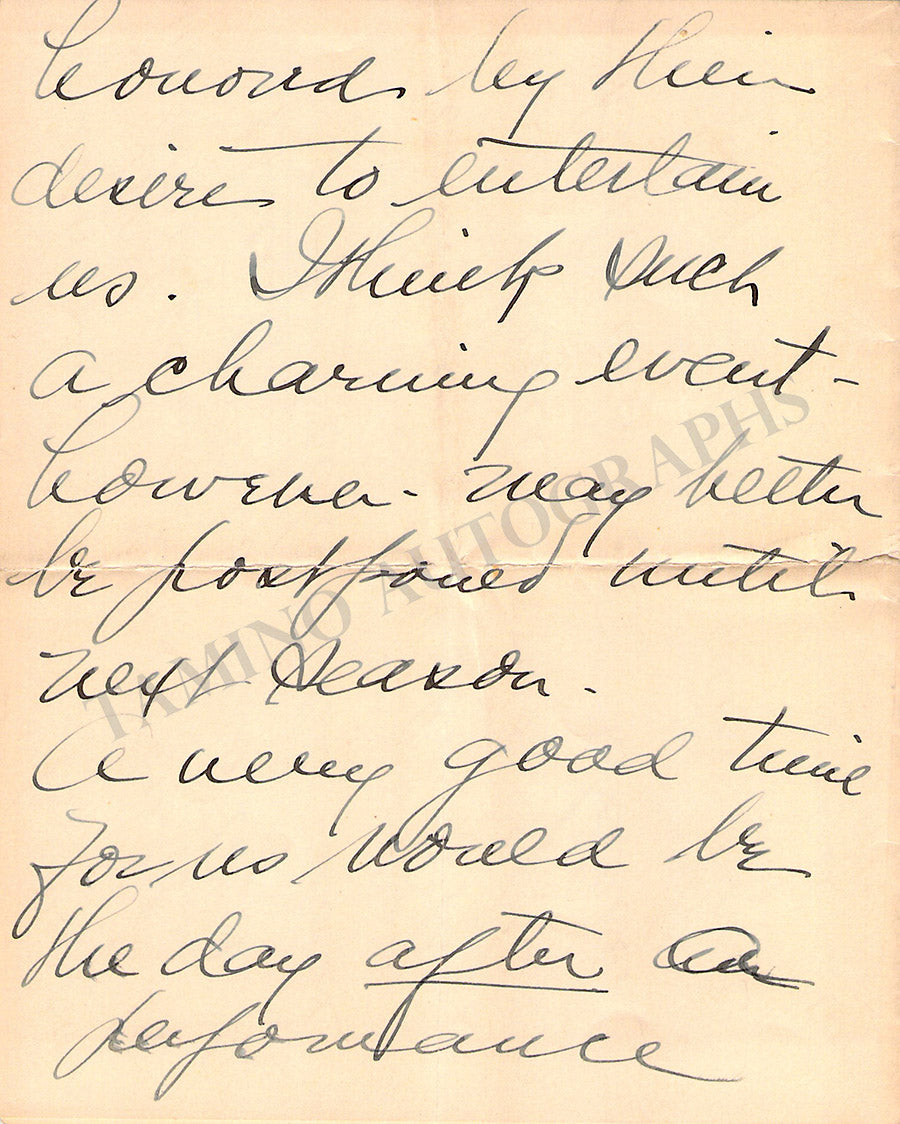 honored by their
desire to entertain
us. I think such
a charming event -
however - may better
be postponed until
next season.
A very good time
for us would be
the day after our
performance
TAMINO AUTOGRAPHS